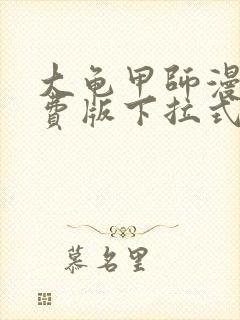 大龟甲師漫
費版下拉式
慕名里